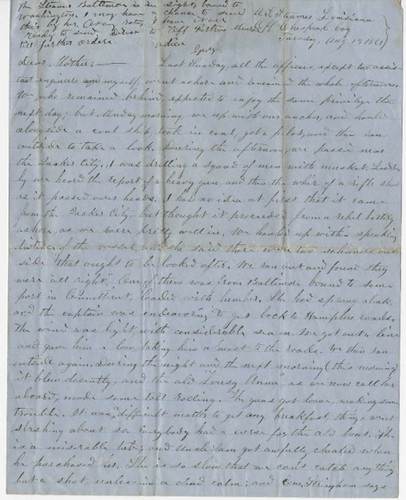 the Steamer Baltimore is in sight, bound to
Washington. I may have a chance to send
this by her. Going
ready to send. Direct to
till further orders
U.S. Steamer Louisiana
Chesapeake Bay
Tuesday, Aug 13 1861
Dear Mother:—
Last Sunday, all the officers, except two assis
tant engineers and myself, went ashore and remained the whole afternoon.
We who remained behind, expected to enjoy the same privilege the
next day; but Monday morning we up with our anchor, and hauled
alongside a coal ship, took in coal, got a pilot, and then ran
outside to take a look. During the afternoon we passed near
the Quaker City; I was drilling a squad of men with muskets. Sudden
ly we heard the report of a heavy gun and then the whir of a rifle shot
as it passed over heads. I had no idea at first that it came
from the Quaker City but thought it proceeded from a rebel battery
ashore, as we were pretty well in. We hauled up within speaking
distance of the vessel, and she said there were two schooners out
side that ought to be looked after. We ran out and found they
were "all right," One of them was from Baltimore bound to some
port in Connecticut, loaded with lumber. She had sprung aleak
and the captain was endeavoring to get back to Hampton roads.
The wind was light, with considerable sea on. We got out a line
and gave him a tow, taking him almost to the roads. We then ran
outside again. During the night and the next morning (this morning)
it blew decently, and the old Lousy Anna, as we now call her
aboard, made some tall rocking. The guns got loose, making some
trouble. It was difficult matter to get any breakfast, things went
sloshing about so. Everybody had a curse for the old boat. She
is a miserable tub; and Uncle Sam got awfully cheated when
he purchased her. She is so slow that we can't catch anything
but a shot, unless in a dead calm; and Com. Stringham says